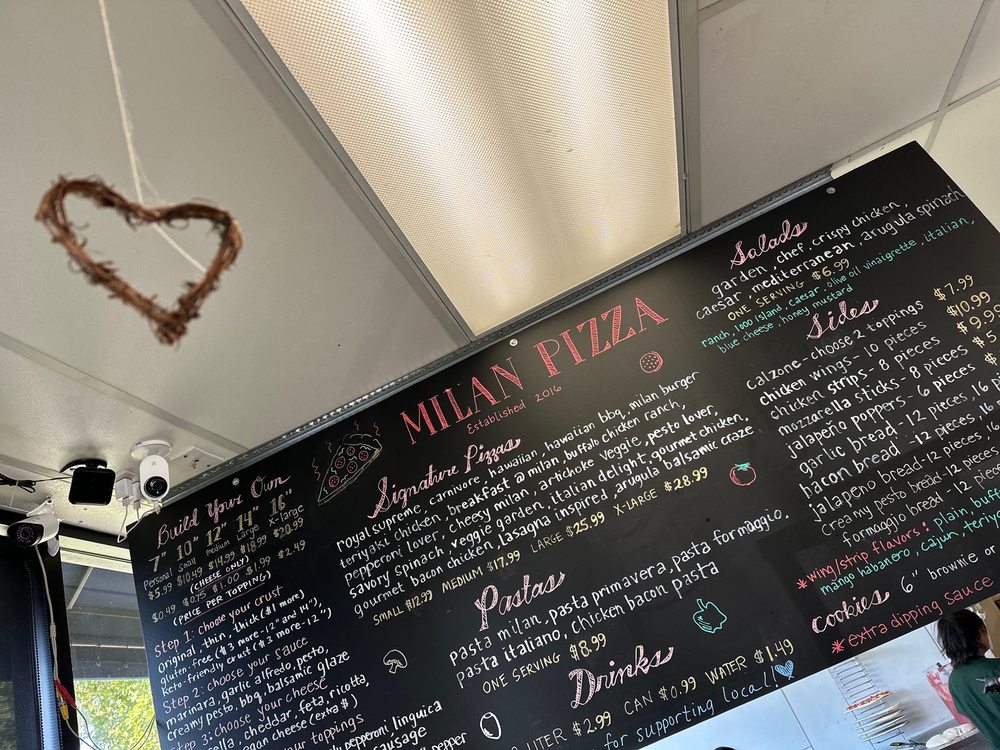 MILAN PIZZA
Established 2016
Build Your Own
7" 10" 12" 14" 16"
Personal Small Medium Large X-large
$5.99 $10.49 $14.99 $18.99 $20.99
(CHEESE ONLY)
$0.49 $0.75 $1.00 $1.99 $2.49
(PRICE PER TOPPING)
Step 1: choose your crust
Original - thin, thick ($1 more)
gluten-free ($3 more - 12" and 14"),
Keto-friendly crust ($3 more - 12")
Step 2: choose your sauce
marmara, garlic alfredo, pesto,
creamy pesto, bbq, balsamic glaze
Step 3: choose your cheese
cheddar, feta, ricotta,
cheese (extra $)
your toppings
pepperoni, linguica
sausage
pepper
Signature Pizzas
royal supreme, carnivore, hawaiian, hawaiian bbq, milan burger
teriyaki chicken, breakfast @ milan, buffalo chicken ranch,
pepperoni lover, cheesy milan, artichoke veggie, pesto lover,
savory spinach, veggie garden, italian delight, gourmet chicken,
gourmet bacon chicken, lasagna inspired, arugula balsamic craze
SMALL $12.99 MEDIUM $17.99 LARGE $25.99 X-LARGE $28.99
Pastas
pasta milan, pasta primavera, pasta formaggio,
pasta italiano, chicken bacon pasta
ONE SERVING $8.99
Drinks
LITER $2.99 CAN $0.99 WATER $1.49
for supporting local!
Salads
garden, chef, crispy chicken,
caesar, mediterranean, arugula spinach
ONE SERVING $6.99
ranch, 1000 island, caesar, olive oil vinaigrette, italian,
blue cheese honey mustard
Sides
calzone - choose 2 toppings $7.99
chicken wings - 10 pieces $10.99
chicken strips - 8 pieces
mozzarella sticks - 8 pieces
jalapeño poppers - 6 pieces
garlic bread - 12 pieces, 16 
bacon bread - 12 pieces, 16
jalapeno bread - 12 pieces, 16
creamy pesto bread - 12 pieces
formaggio bread - 12 pieces
*wing/strip flavors: plain
mango habanero, cajun,
cookies 6" brownie or
*extra dipping sauce